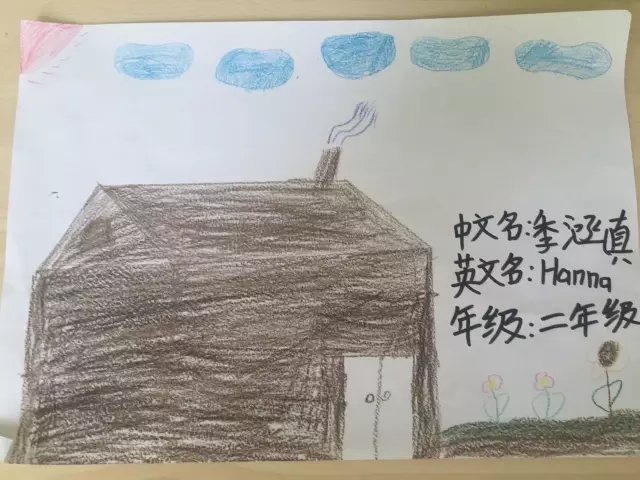 中文名:季涵真
英文名:Hanna
年级:二年级